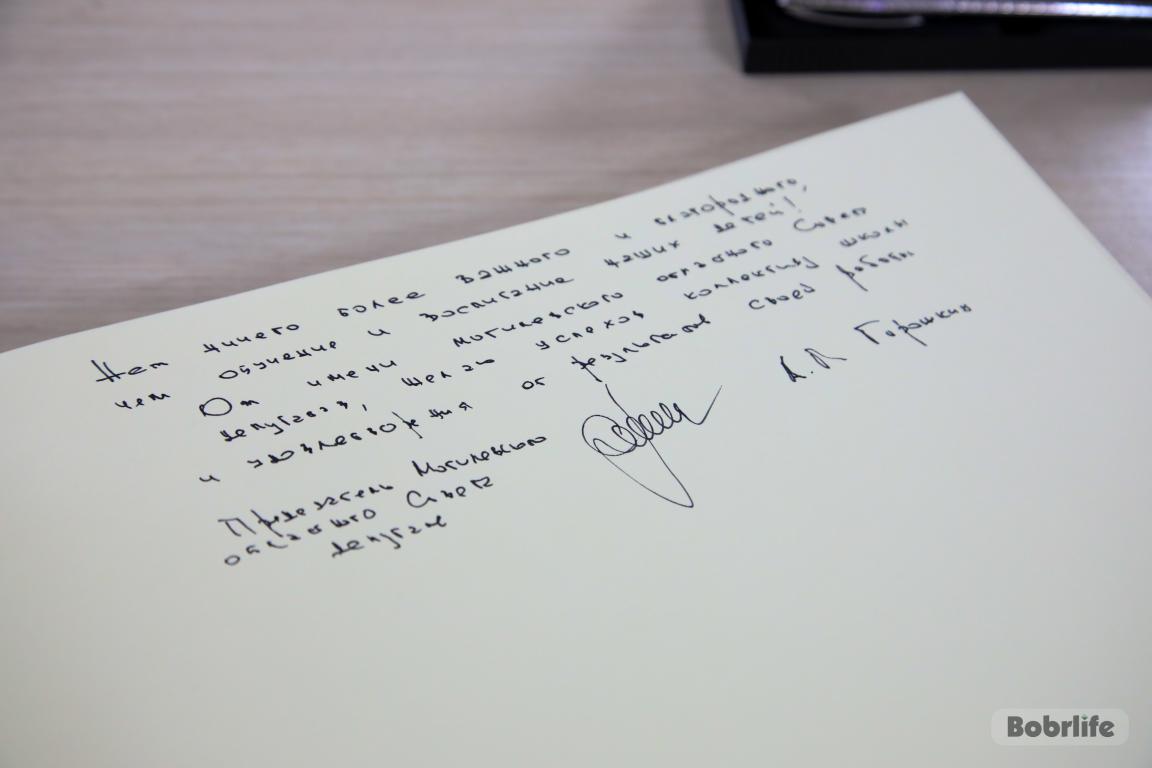 Нет ничего более важного и благородного,
чем обучение и воспитание наших детей!
От имени Могилевского областного Совета
депутатов, желаю успехов коллективу школы
и удовлетворения от результатов своей работы
Председатель Могилевского
областного Совета
депутатов
А.П. Горошкин
Bobrlife